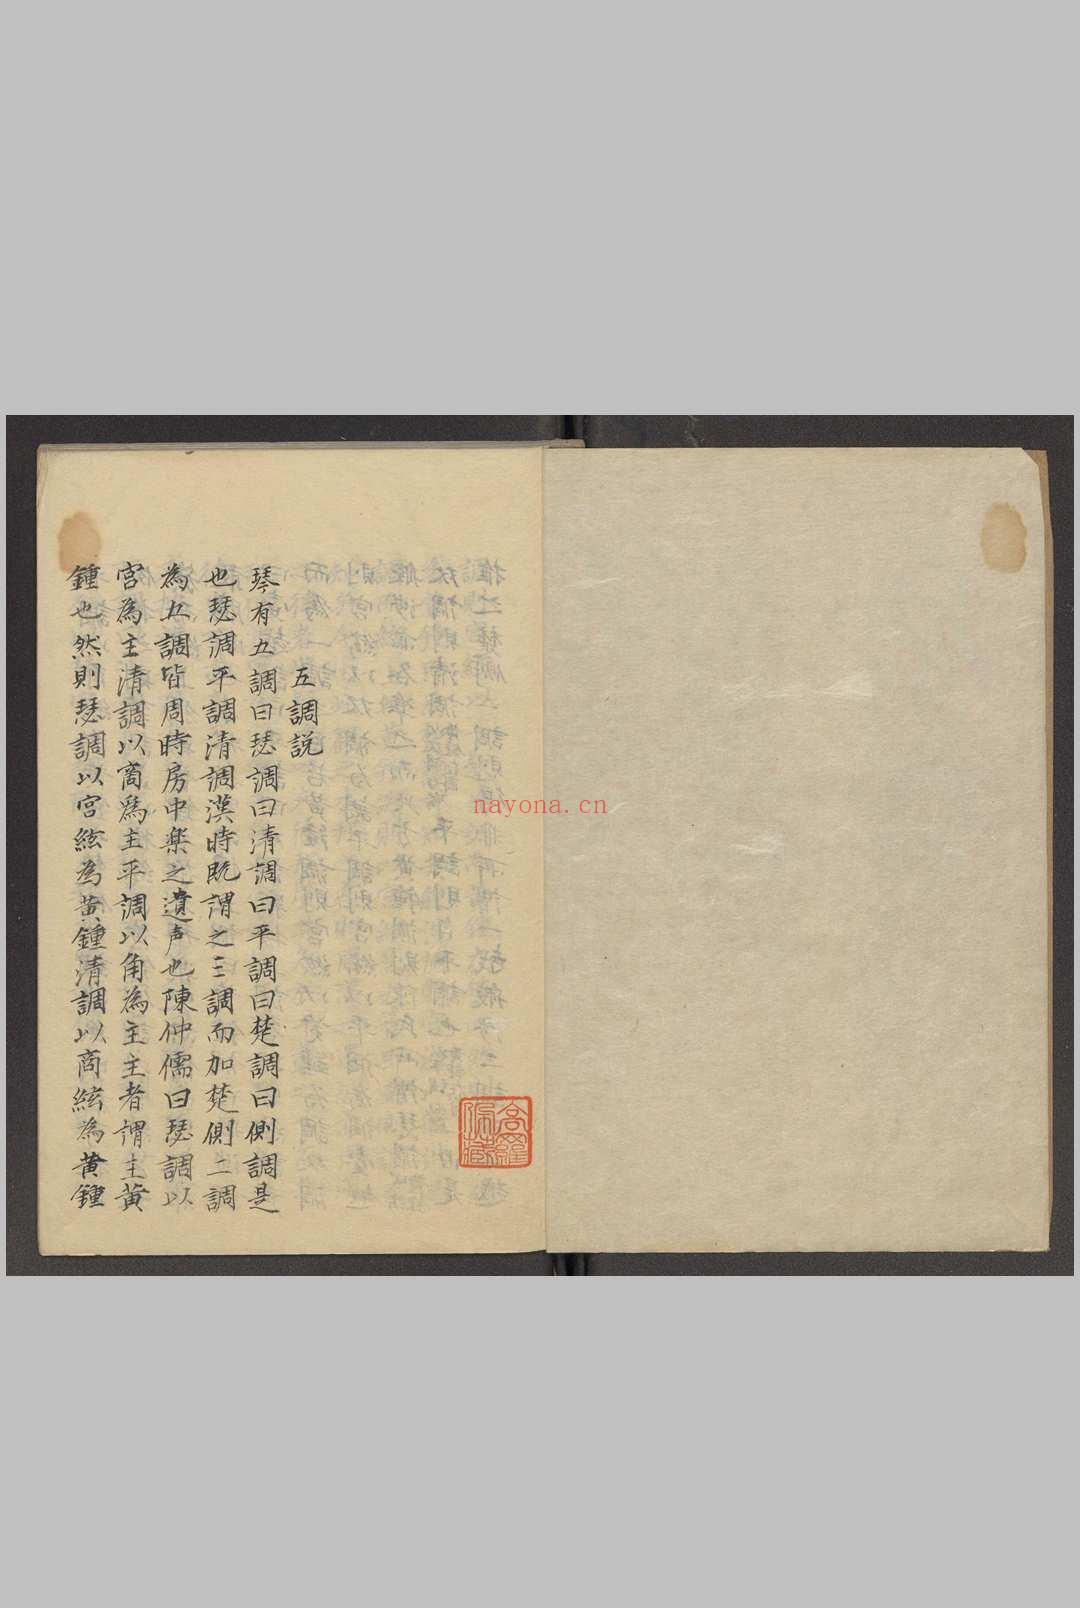 五調說
琴有五調曰瑟調曰清調曰平調曰楚調曰側調是
也瑟調平調清調漢時既謂之三調而加楚側二調
為五調皆周時房中楽之遺声也陳仲儒曰瑟調以
宮為主清調以商為主平調以角為主主者謂主黃
鍾也然則瑟調以宮絃為黃鍾清調以商絃為黃鍾
高羅佩藏
nayona.cn